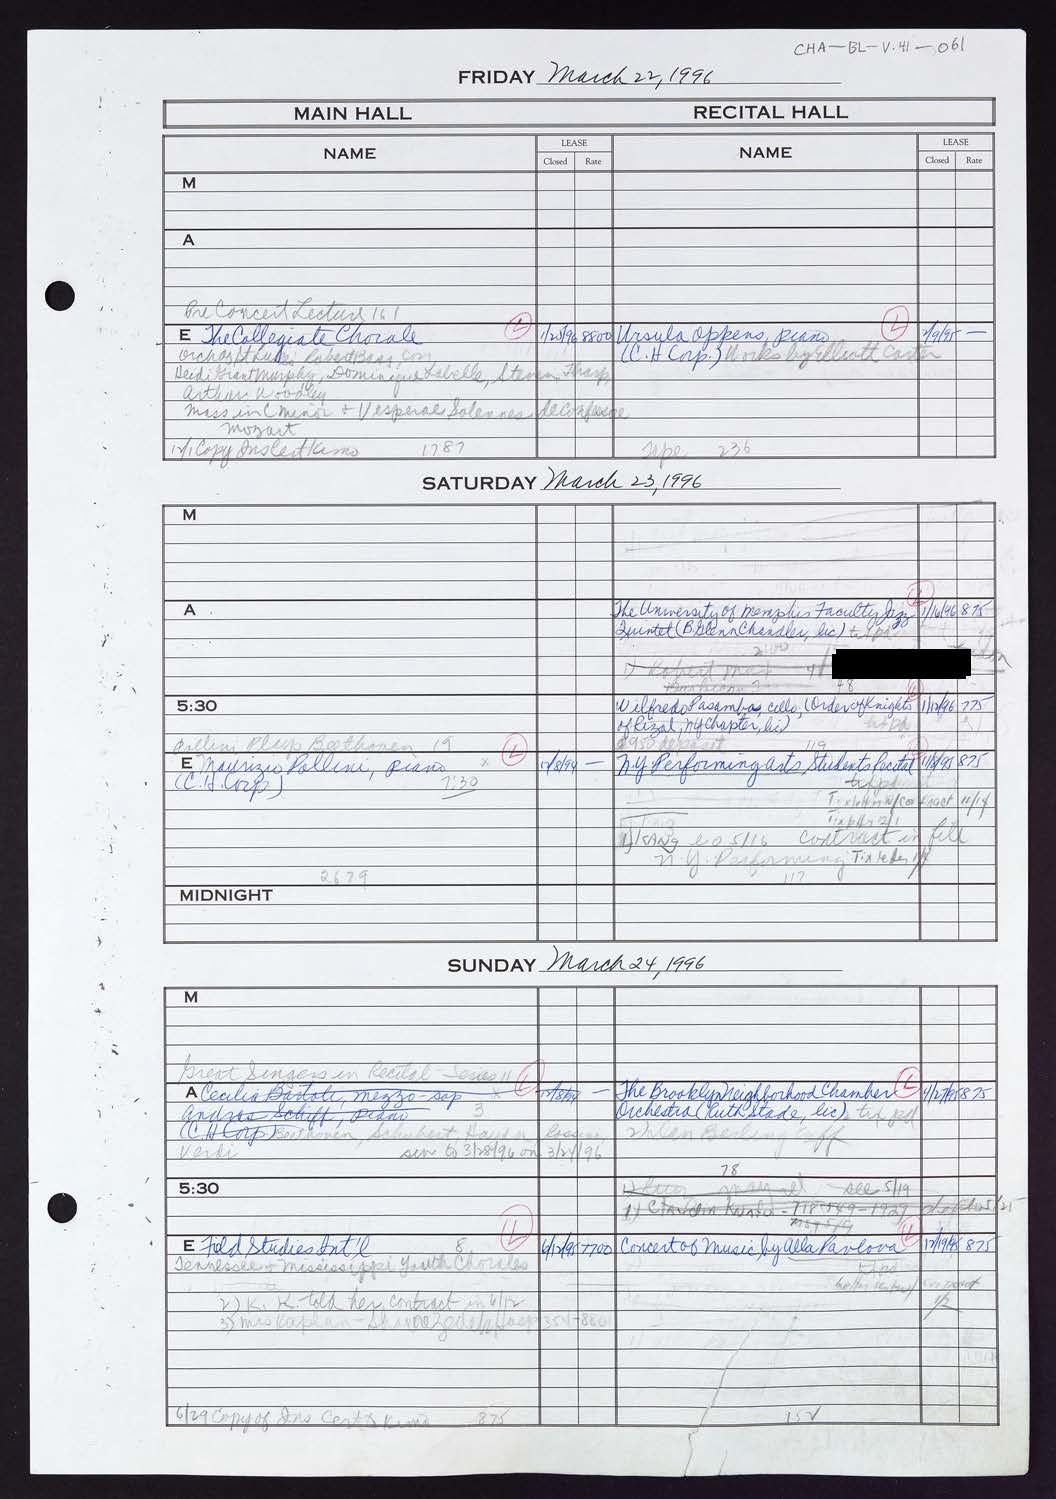 CHA-BL-V.41-061
FRIDAY March 22, 1996
MAIN HALL RECITAL HALL
NAME LEASE Closed Rate NAME LEASE Closed Rate
M
A
Pre Concert Lecture 161
E The Collegiate Chorale L 1/25/96 8800 Ursula Oppens, piano L 2/9/95 —
Orch of St Luke's Robert Bass, Con (C.H Corp.) Works by Elliott Carter
Heidi Grant Murphy, Dominique Labelle, Steven Tharp,
Arthur Woodley
Mass in C minor + Vesperae Solennes de Confessore
Mozart
12/1 Copy Ins Cert Kimo 1787 Tape 236
SATURDAY March 23, 1996
M
A The University of Memphis Faculty Jazz L 1/16/96 875
Quintet (B. Glenn Chandler, lic) tix pd
1) Robert
48
5:30 Wilfredo Pasambas, cello, (Order of Knights 1/12/96 775
of Rizal, NY Chapter, lic) tix pd
Pollini Plays Beethoven 19 $950 deposit 119
E Maurizio Pollini, piano x L — N.Y Performing Arts, Students Recital 11/8/95 875
(C.H. Corp) 7:30 tix pd
Tix when w/ Contract 11/14
Tix ptr 2/1
e o 5/16 contract in file
N.Y. Performing Tix
2679 117
MIDNIGHT
SUNDAY March 24, 1996
M
Great Singers in Recital - Series II L
A Cecilia Bartoli, mezzo-sop x — The Brooklyn Neighborhood Chamber L 4/27/95 875
Andras Schiff, piano 3 Orchestra (Ruth Slade, lic) tix pd
(C.H Corp) Beethoven, Schubert, Haydn, Rossini,
Verdi see to 3/28/96 on 3/24/96
78
5:30 see 5/19
1)
msg 5/9
E Field Studies Int'l 8 L 6/12/95 7700 Concert of Music by Alla Pavlova L 12/19/95 875
Tennessee + Mississippi Youth Chorales tix pd
2) K. K. told her contract in 6/12 1/2
3) Ms Kaplan -
6/29 Copy of Ins Cert Kimo 875 152